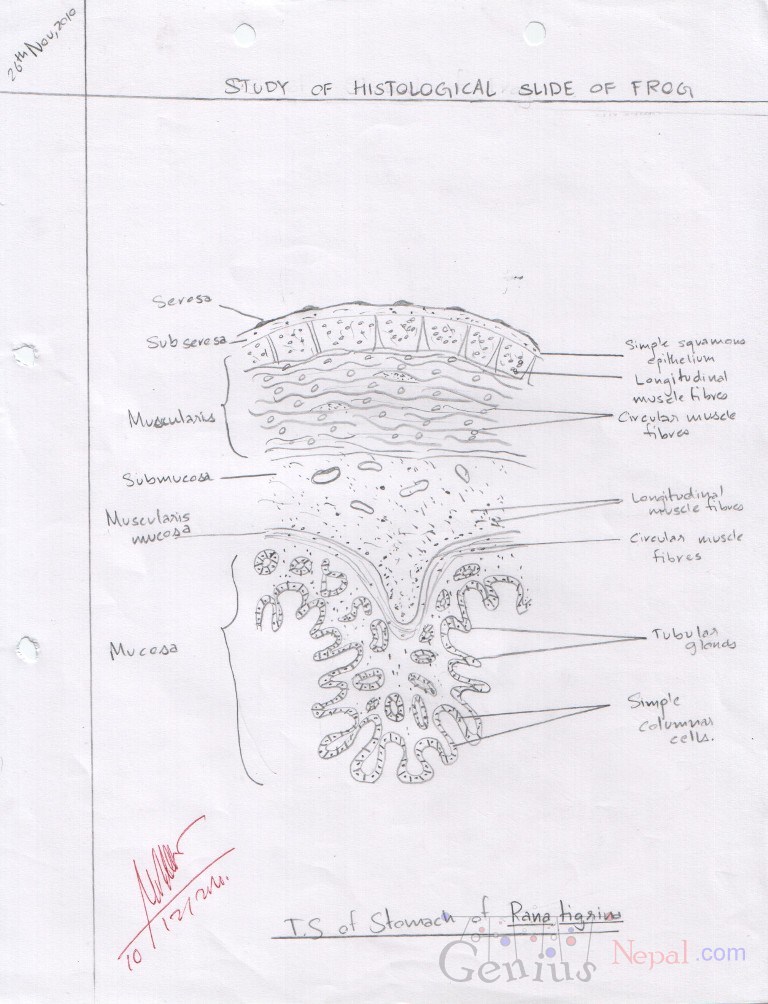 26th Nov, 2010
STUDY OF HISTOLOGICAL SLIDE OF FROG
Serosa
Sub serosa
Muscularis
Submucosa
Muscularis
mucosa
Mucosa
Simple squamous
epithelium
Longitudinal
muscle fibres
Circular muscle
fibres
Longitudinal
muscle fibres
Circular muscle
fibres
Tubular
glands
Simple
columnar
cells.
T.S of Stomach of Rana tigrina
Genius Nepal.com